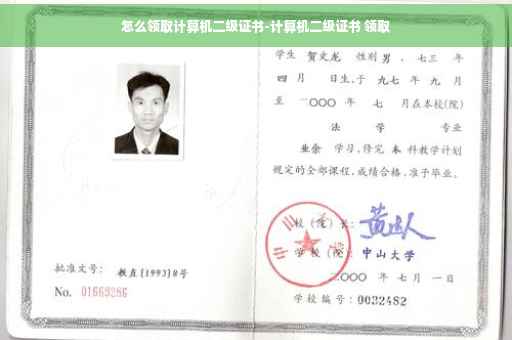 怎么领取计算机二级证书-计算机二级证书 领取
学生 贺文龙 性别 男 、七三 年
四 月 日生,于 九七 年 九 月
至 二〇〇〇 年 七 月在本校(院)
法 学 专业
业余 学习,修完 本 科教学计划
规定的全部课程,成绩合格,准予毕业。
校(院)长:
学校(院): 中山大学
批准文号: 教直[1993]8号
二〇〇〇 年 七 月 一 日
No. 01669286
学校编号: 0032482